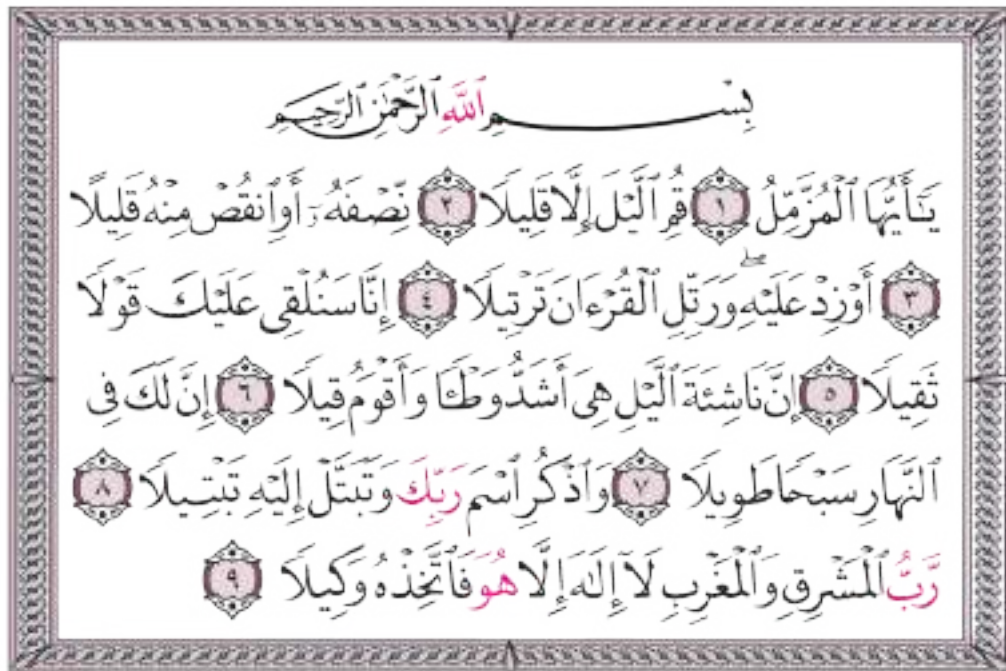 بِسْمِ ٱللَّهِ ٱلرَّحْمَٰنِ ٱلرَّحِيمِ
يَٰٓأَيُّهَا ٱلْمُزَّمِّلُ ١ قُمِ ٱلَّيْلَ إِلَّا قَلِيلًا ٢ نِّصْفَهُۥٓ أَوِ ٱنقُصْ مِنْهُ قَلِيلًا
٣ أَوْ زِدْ عَلَيْهِ ۖ وَرَتِّلِ ٱلْقُرْءَانَ تَرْتِيلًا ٤ إِنَّا سَنُلْقِى عَلَيْكَ قَوْلًا
ثَقِيلًا ٥ إِنَّ نَاشِئَةَ ٱلَّيْلِ هِىَ أَشَدُّ وَطْـًٔا وَأَقْوَمُ قِيلًا ٦ إِنَّ لَكَ فِى
ٱلنَّهَارِ سَبْحًا طَوِيلًا ٧ وَٱذْكُرِ ٱسْمَ رَبِّكَ وَتَبَتَّلْ إِلَيْهِ تَبْتِيلًا ٨
رَّبُّ ٱلْمَشْرِقِ وَٱلْمَغْرِبِ لَآ إِلَٰهَ إِلَّا هُوَ فَٱتَّخِذْهُ وَكِيلًا ٩